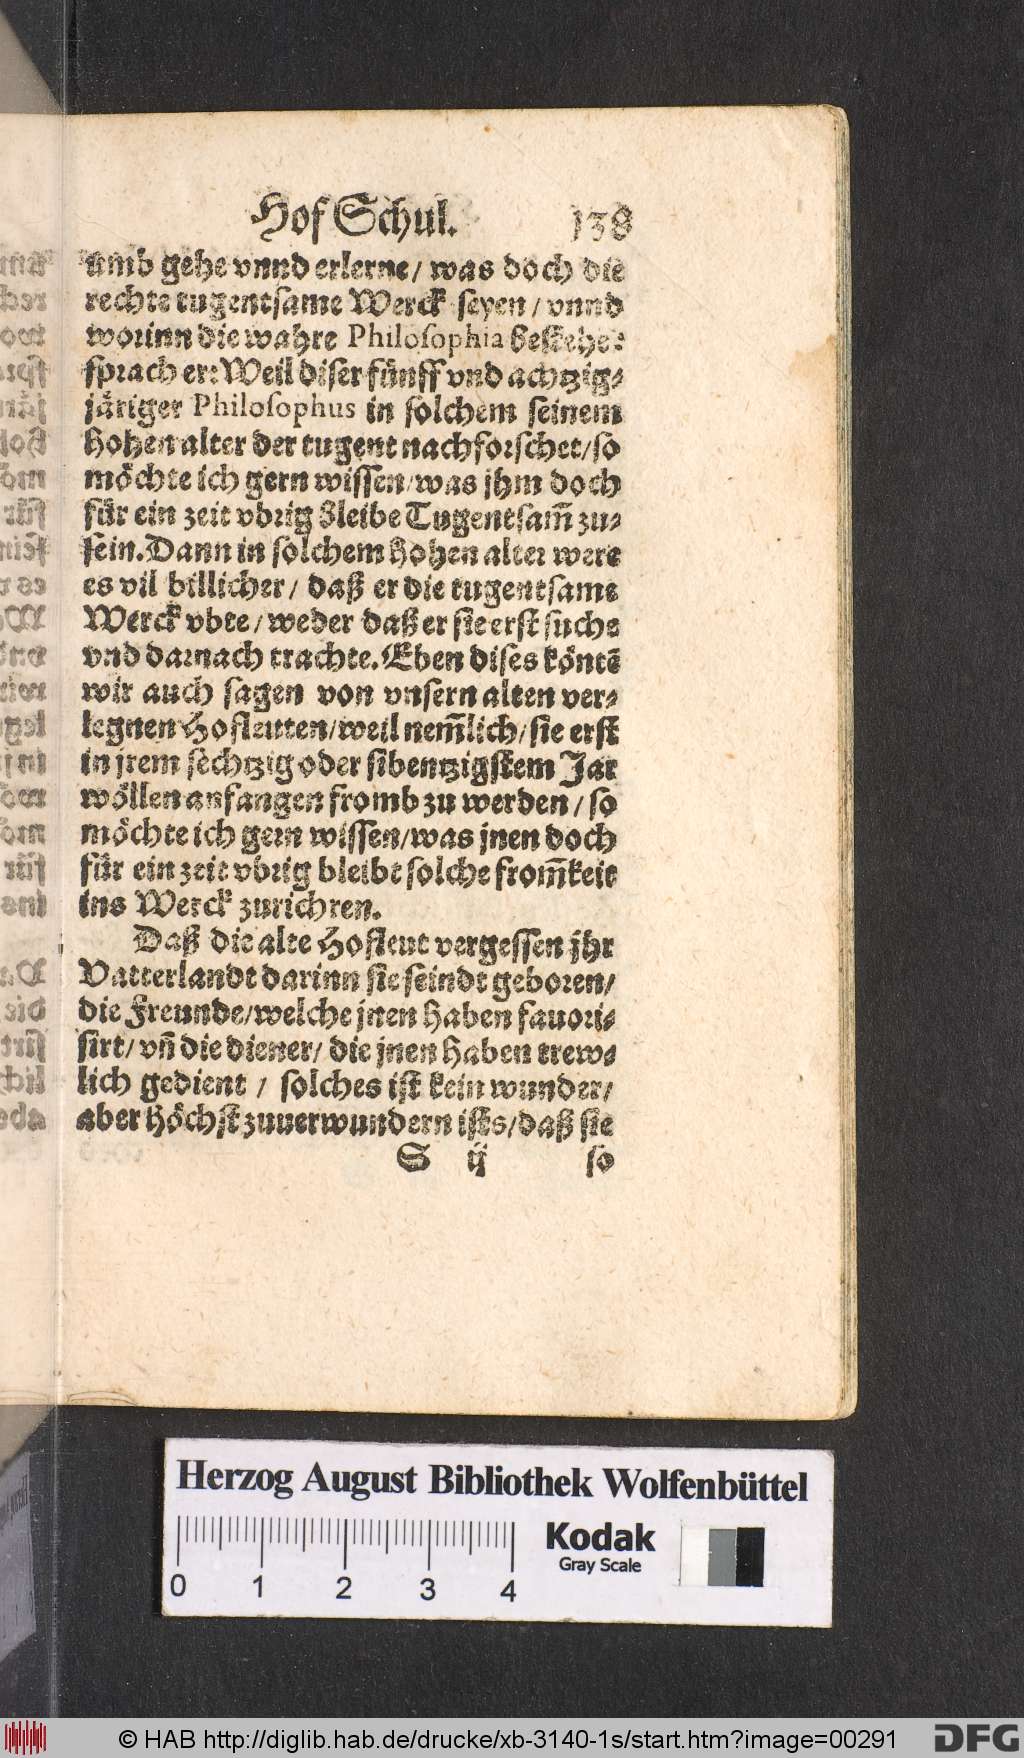 Hof Schul. 138
umb gehe vnnd erlerne/ was doch die
rechte tugentsame Werck seyen/ vnnd
worinn die wahre Philosophia bestehe:
sprach er: Weil diser fünff vnd achtzig-
järiger Philosophus in solchem seinem
hohen alter der tugent nachforschet/ so
möchte ich gern wissen/ was jhm doch
für ein zeit vbrig bleibe Tugentsam̄ zu-
sein. Dann in solchem hohen alter were
es vil billicher/ daß er die tugentsame
Werck vbte/ weder daß er sie erst suche
vnd darnach trachte. Eben dises köntē
wir auch sagen von vnsern alten ver-
legnen Hofleutten/ weil nem̄lich/ sie erst
in jrem sèchtzig oder sibentzigstem Jar
wöllen anfangen fromb zu werden/ so
möchte ich gern wissen/ was jnen doch
für ein zeit vbrig bleibt solche from̄keit
ins Werck zurichren.
Daß die alte Hofleut vergessen jhr
Vatterlandt darinn sie seindt geboren/
die Freunde/ welche jnen haben fauori-
sirt/ vn̄ die diener/ die jnen haben trew-
lich gedient / solches ist kein wunder/
aber höchst zuuerwundern ists/ daß sie
S ij so
Herzog August Bibliothek Wolfenbüttel
Kodak
Gray Scale
0 1 2 3 4
© HAB http://diglib.hab.de/drucke/xb-3140-1s/start.htm?image=00291 DFG